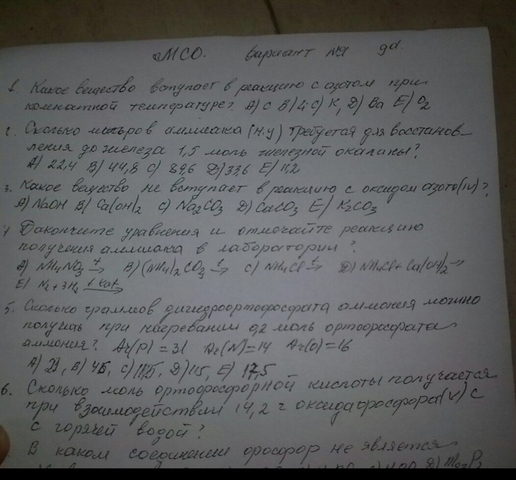 МСО. Вариант №1 9 кл.
1. Какое вещество вступает в реакцию с азотом при
комнатной температуре? A) C B) Li C) K, D) Ba E) O2
2. Сколько литров аммиака (н.у) требуется для восстанов-
ления до железа 1,5 моль железной окалины?
A) 22,4 B) 44,8 C) 89,6 D) 33,6 E) 11,2
3. Какое вещество не вступает в реакцию с оксидом азота (IV)?
A) NaOH B) Ca(OH)2 C) Na2CO3 D) CaCO3 E) K2CO3
4 Закончите уравнения и отмечайте реакцию
получения аммиака в лаборатории?
A) NH4NO3 t→ B) (NH4)2CO3 t→ C) NH4Cl t→ D) NH4Cl+Ca(OH)2→
E) N2+3H2 t kat→
5. Сколько граммов дигидроортофосфата аммония можно
получить при нагревании 0,2 моль ортофосфата
аммония? Ar(P)=31 Ar(N)=14 Ar(O)=16
A) 23, B) 46, C) 115, D) 15, E) 17,5
6. Сколько моль ортофосфорной кислоты получается
при взаимодействии 14,2 г оксида фосфора (V) с
с горячей водой?
В каком соединении фосфор не является